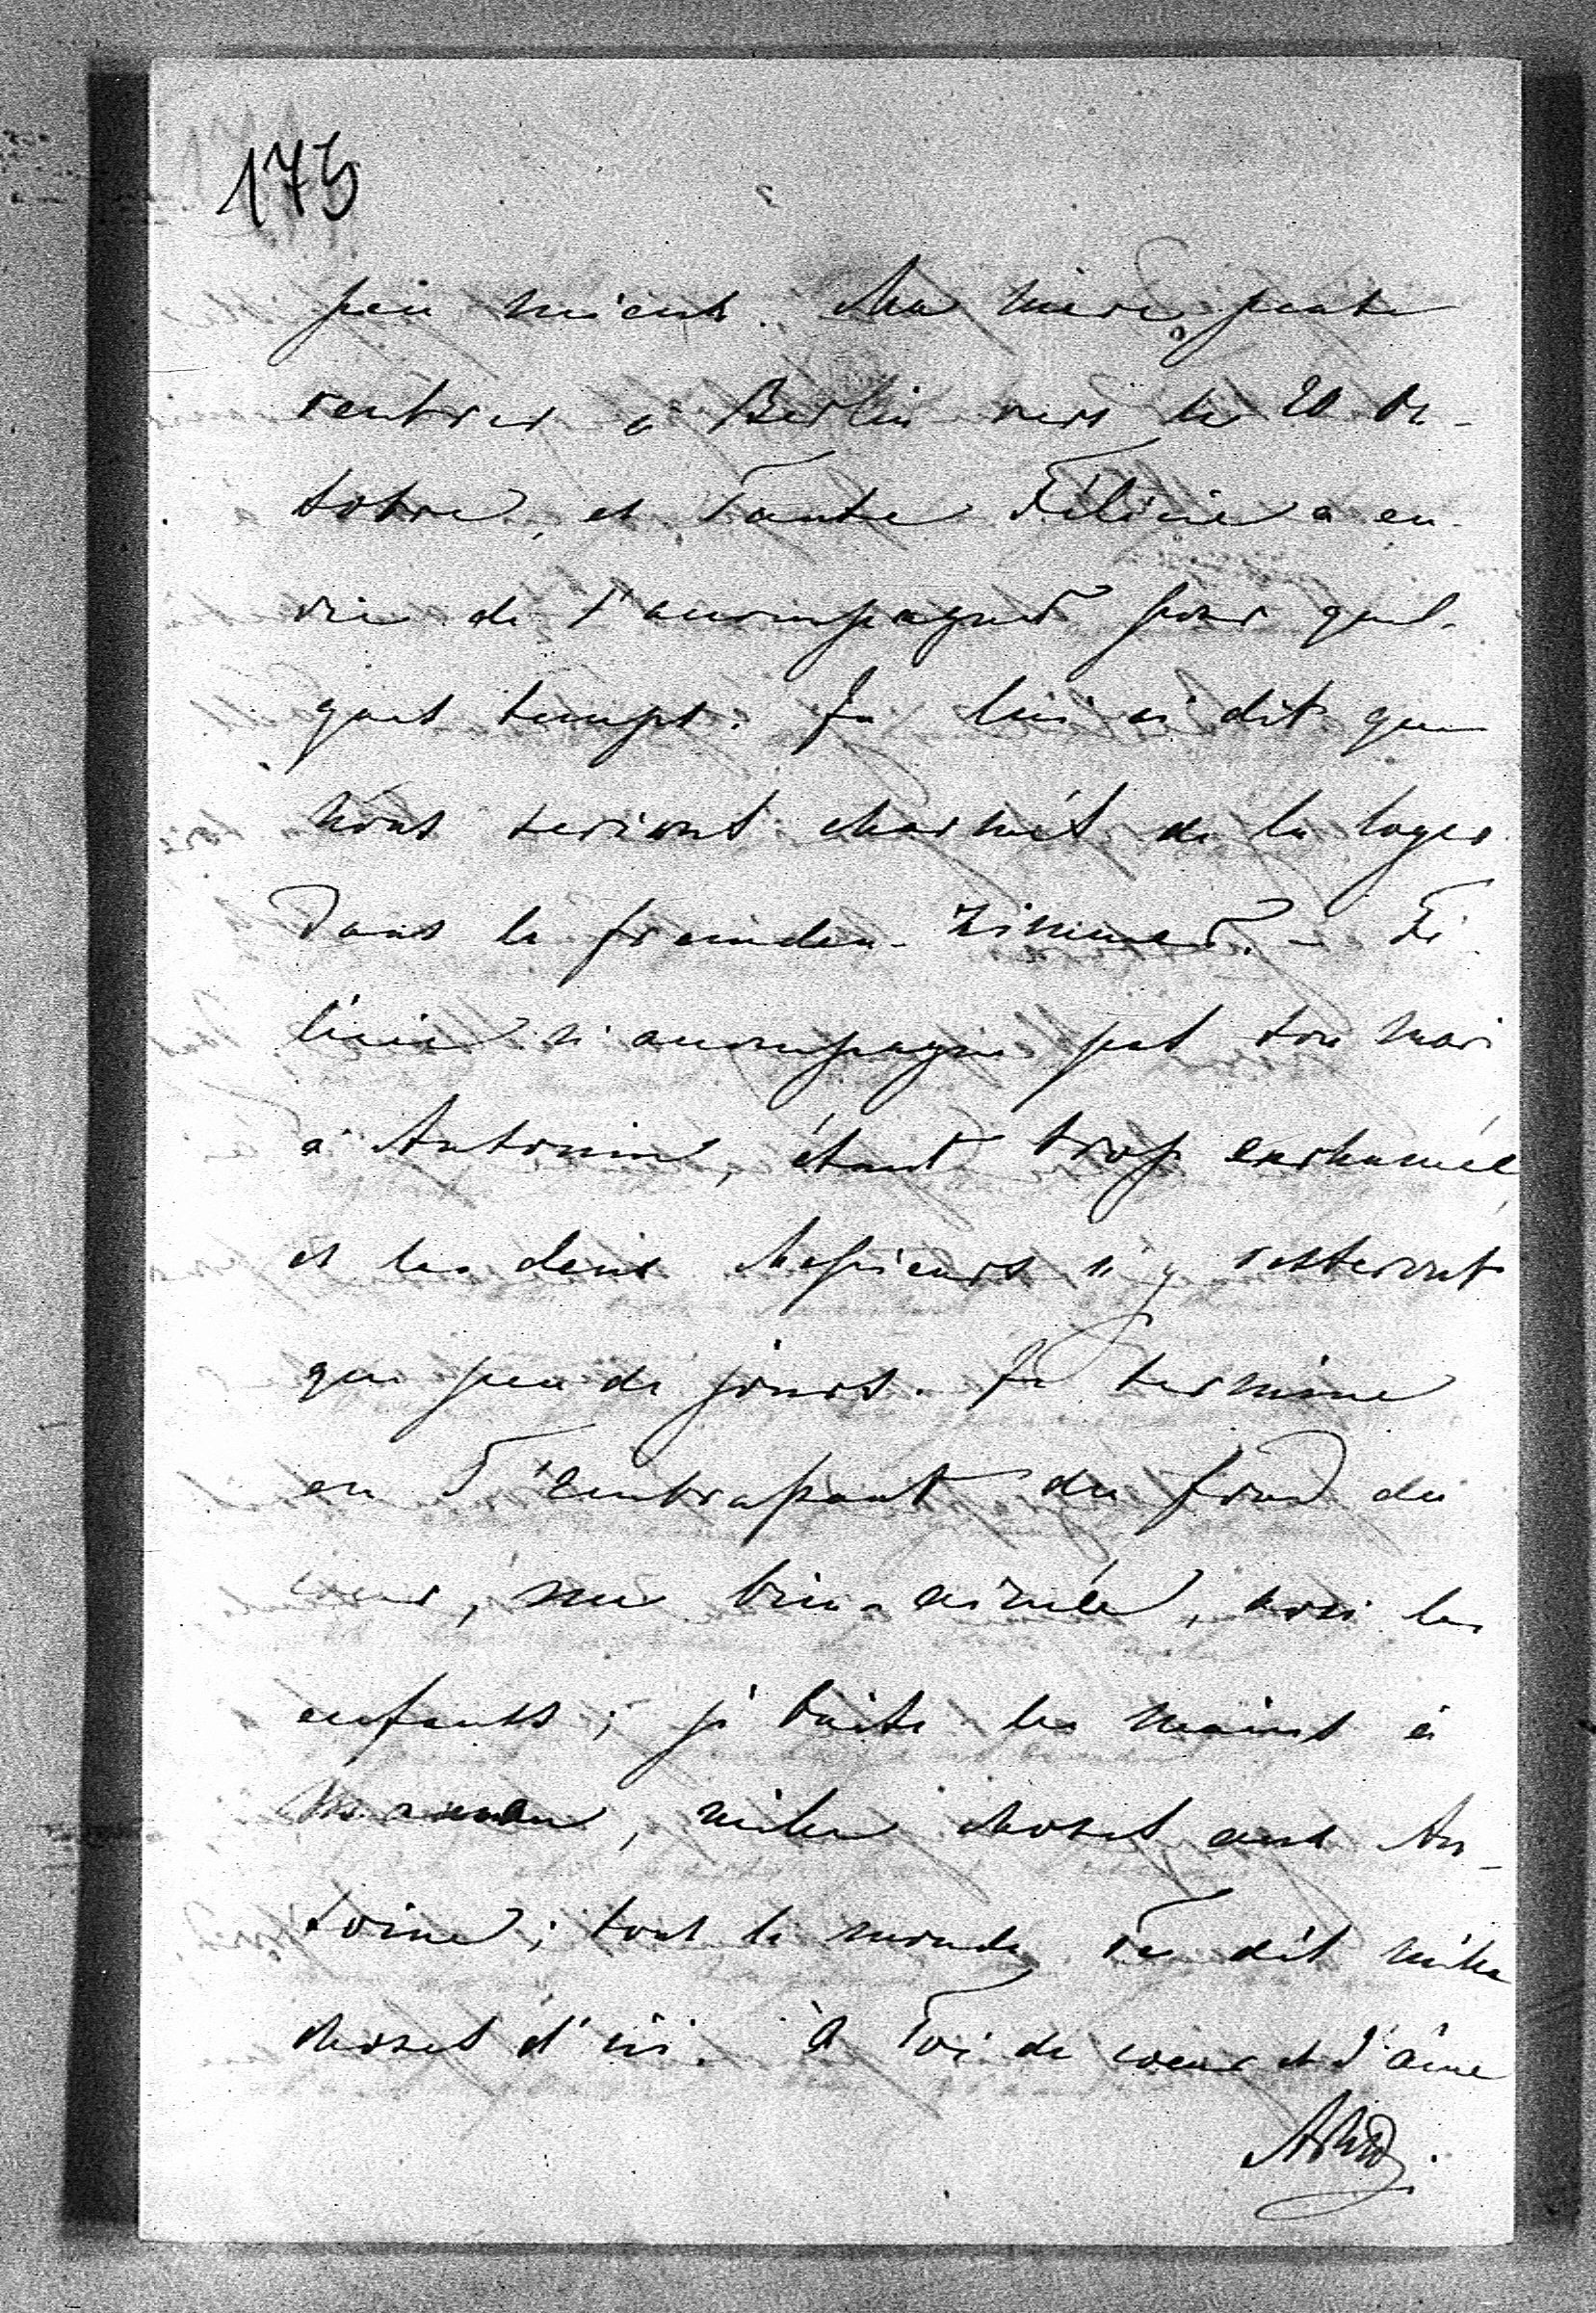 175
peu mieux. Ma mère pense
rentrer à Berlin vers le 20 Oc-
tobre, et Tante Félicie a en-
vie de l'accompagner pour quel-
ques temps. Je lui ai dit que
nous serions charmés de la loger
dans le fremden-Zimmer. - Fé-
licie n'accompagne pas son mari
à Antonin, étant trop enrhumée
et les deux Messieurs n'y resteront
que peu de jours. Je termine
en T'embrassant du fond du
coeur, ma bien-aimée, avec les
enfants; je baise les mains à
Maman, mille choses aux An-
toine; tout le monde Te dit mille
choses d'ici. à Toi de coeur et d'âme